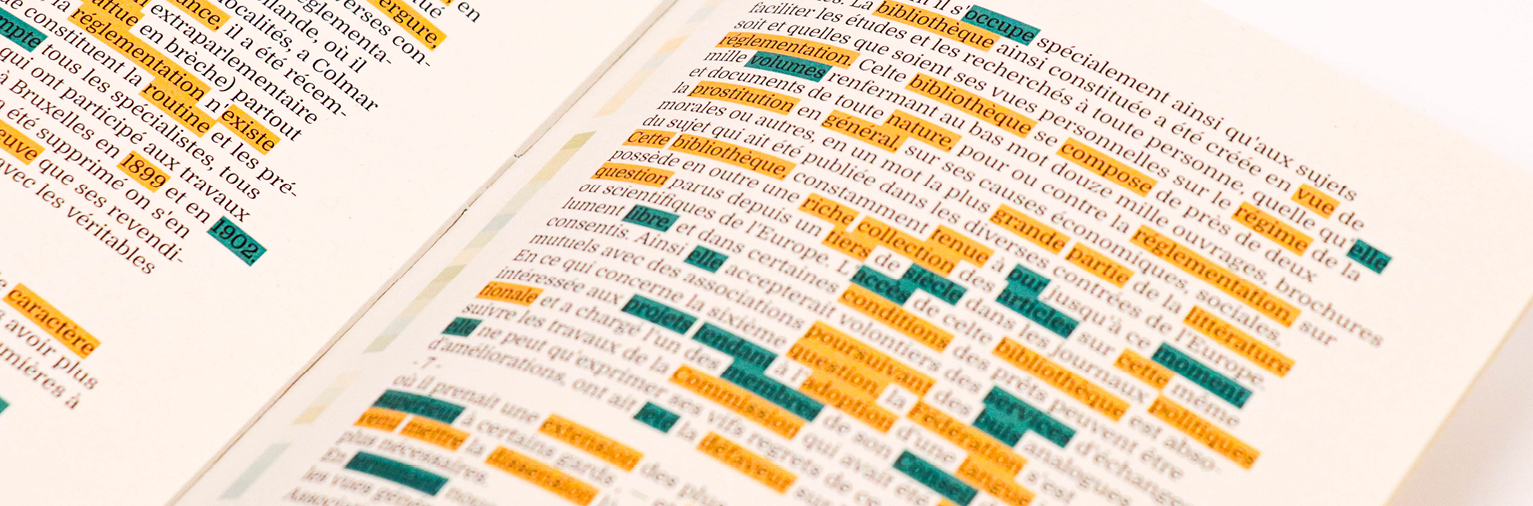 en
vergure,
verses con-
réglementa-
où il
localités, a Colmar
il a été récem-
extraparlementaire
en brèche) partout
réglementation n'existe
constituent la routine et les pré-
tous les spécialistes, tous
qui ont participé aux travaux
à Bruxelles en 1899 et en 1902,
a été supprimé on s'en
que ses revendi-
avec les véritables
caractère
avoir plus
mières à
il s'occupe spécialement ainsi qu'aux sujets
La bibliothèque ainsi constituée a été créée en vue de
faciliter les études et les recherchés à toute personne, quelle qu'elle
soit et quelles que soient ses vues personnelles sur le régime de la
réglementation. Cette bibliothèque se compose de près de deux
mille volumes renfermant au bas mot douze mille ouvrages, brochures
et documents de toute nature, pour ou contre la réglementation, sur
la prostitution en général, sur ses causes économiques, sociales,
morales ou autres, en un mot la plus grande partie de la littérature
du sujet qui ait été publiée dans les diverses contrées de l'Europe.
Cette bibliothèque, constamment tenue à jour jusqu'à ce moment,
possède en outre une riche collection des articles sur cette même
question parus depuis un tiers de siècle dans les journaux politiques
ou scientifiques de l'Europe. L'accès de cette bibliothèque est abso-
lument libre et dans certaines conditions des prêts peuvent être
consentis. Ainsi elle accepterait volontiers des services d'échanges
mutuels avec des associations poursuivant des buts analogues
En ce qui concerne la sixième question, la Fédération s'est
intéressée aux projets tendant à l'adoption d'une
tionale et a chargé un des membres de son conseil
suivre les travaux de la commission qui avait été
elle ne peut qu'exprimer ses vifs regrets de ce
d'améliorations, ont ait la défaveur
- 7 -
où il prenait une extension des plus
à certains
plus nécessaires.